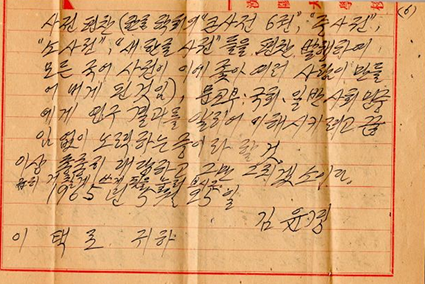 (6)
사전 편찬 (한글 학회의 "큰사전 6권", "중사전",
"소사전", "새 한글 사전" 들을 편찬 발행하여
모든 국어 사전이 이에 좇아 여러 사람이 만들
어 내게 된 것임), 문교부·국회·일반 사회 민중
에게 연구 결과를 알리어 이해시키려고 끊
임 없이 노력하는 중이라 할 것
이상 대강하고 그만 그치겠소이다.
1965년 일
김윤경
이 택 로 귀하